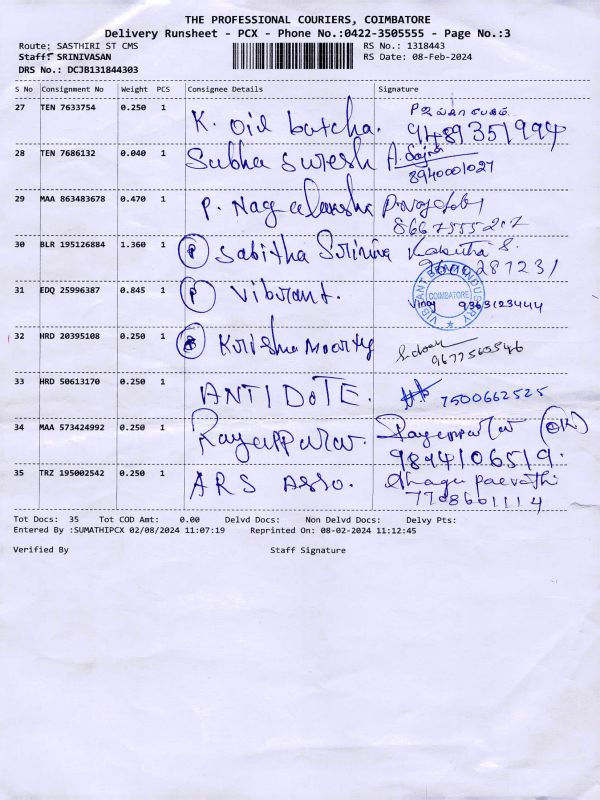 THE PROFESSIONAL COURIERS, COIMBATORE
Delivery Runsheet - PCX - Phone No.:0422-3505555 - Page No.:3
Route: SASTHIRI ST CMS
RS No.: 1318443
Staff: SRINIVASAN
RS Date: 08-Feb-2024
DRS No.: DCJB131844303
S No Consignment No Weight PCS Consignee Details Signature
27 TEN 7633754 0.250 1 K. Oil batcha. 9489351994
28 TEN 7686132 0.040 1 Subha Suresh A.
8940001027
29 MAA 863483678 0.470 1 P.
30 BLR 195126884 1.360 1 P Sabitha Kabitha S.
31 EDQ 25996387 0.845 1 P Vibrant. Vinoy 9363123444
VIBRANT INDUSTRY
COIMBATORE
32 HRD 20395108 0.250 1 Krishnamoorthy
9677560546
33 HRD 50613170 0.250 1 ANTIDOTE. 7500662525
34 MAA 573424992 0.250 1 Rayappara. OK
9894106519.
35 TRZ 195002542 0.250 1 ARS Asso.
7708601114
Tot Docs: 35 Tot COD Amt: 0.00 Delvd Docs: Non Delvd Docs: Delvy Pts:
Entered By :SUMATHIPCX 02/08/2024 11:07:19 Reprinted On: 08-02-2024 11:12:45
Verified By Staff Signature